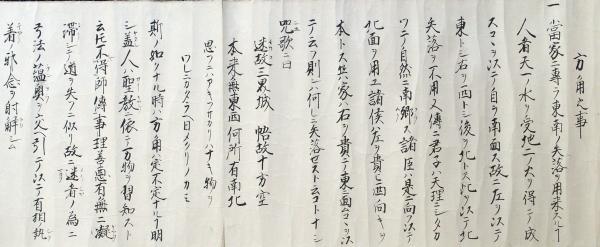 方角之事
一 當家ニ專ラ東南ノ矢落ヲ用来スルヿ
人者天一ノ水ヲ受地二ノ火ヲ得テ成
スコヽヲ以テノ自ラ南面ス故ニ左ヲ以テ
東トシ右ヲ西トシ後ヲ北トス此ヲ以テ
矢落ニ不用人傳ニ君子ハ天理ニシタカ
ツテノ自然ニ南郷ス諸臣ハ是ニ向フヲ以テ
北面ヲ用ユ諸侯左ヲ貴ヒ西向キヲ
本トス兵家ハ右ヲ貴テ東面スコヽヲ以
テ云フ則ハ何レニ矢落セスト云コトナシ
咒歌ニ曰
迷故三界城 悟故十方空
本来無東西 何所有南北
思フニハカキフサカリハナキ物ヲ
ワレニカタラヘ日メクリノカミ
斯ノ如クナル時ハ方角定不定ナルヿ明
シ蓋人ハ聖教ニ依テ万物ヲ習知スト
云託不得師傳事理善悪有無ニ凝
滞シテノ道ヲ失フニ似リ故ニ迷者ノ為ニ
弓法ノ蘊奥ヲ交引テ以テ有相執
着ノ邪念ヲ射解シム